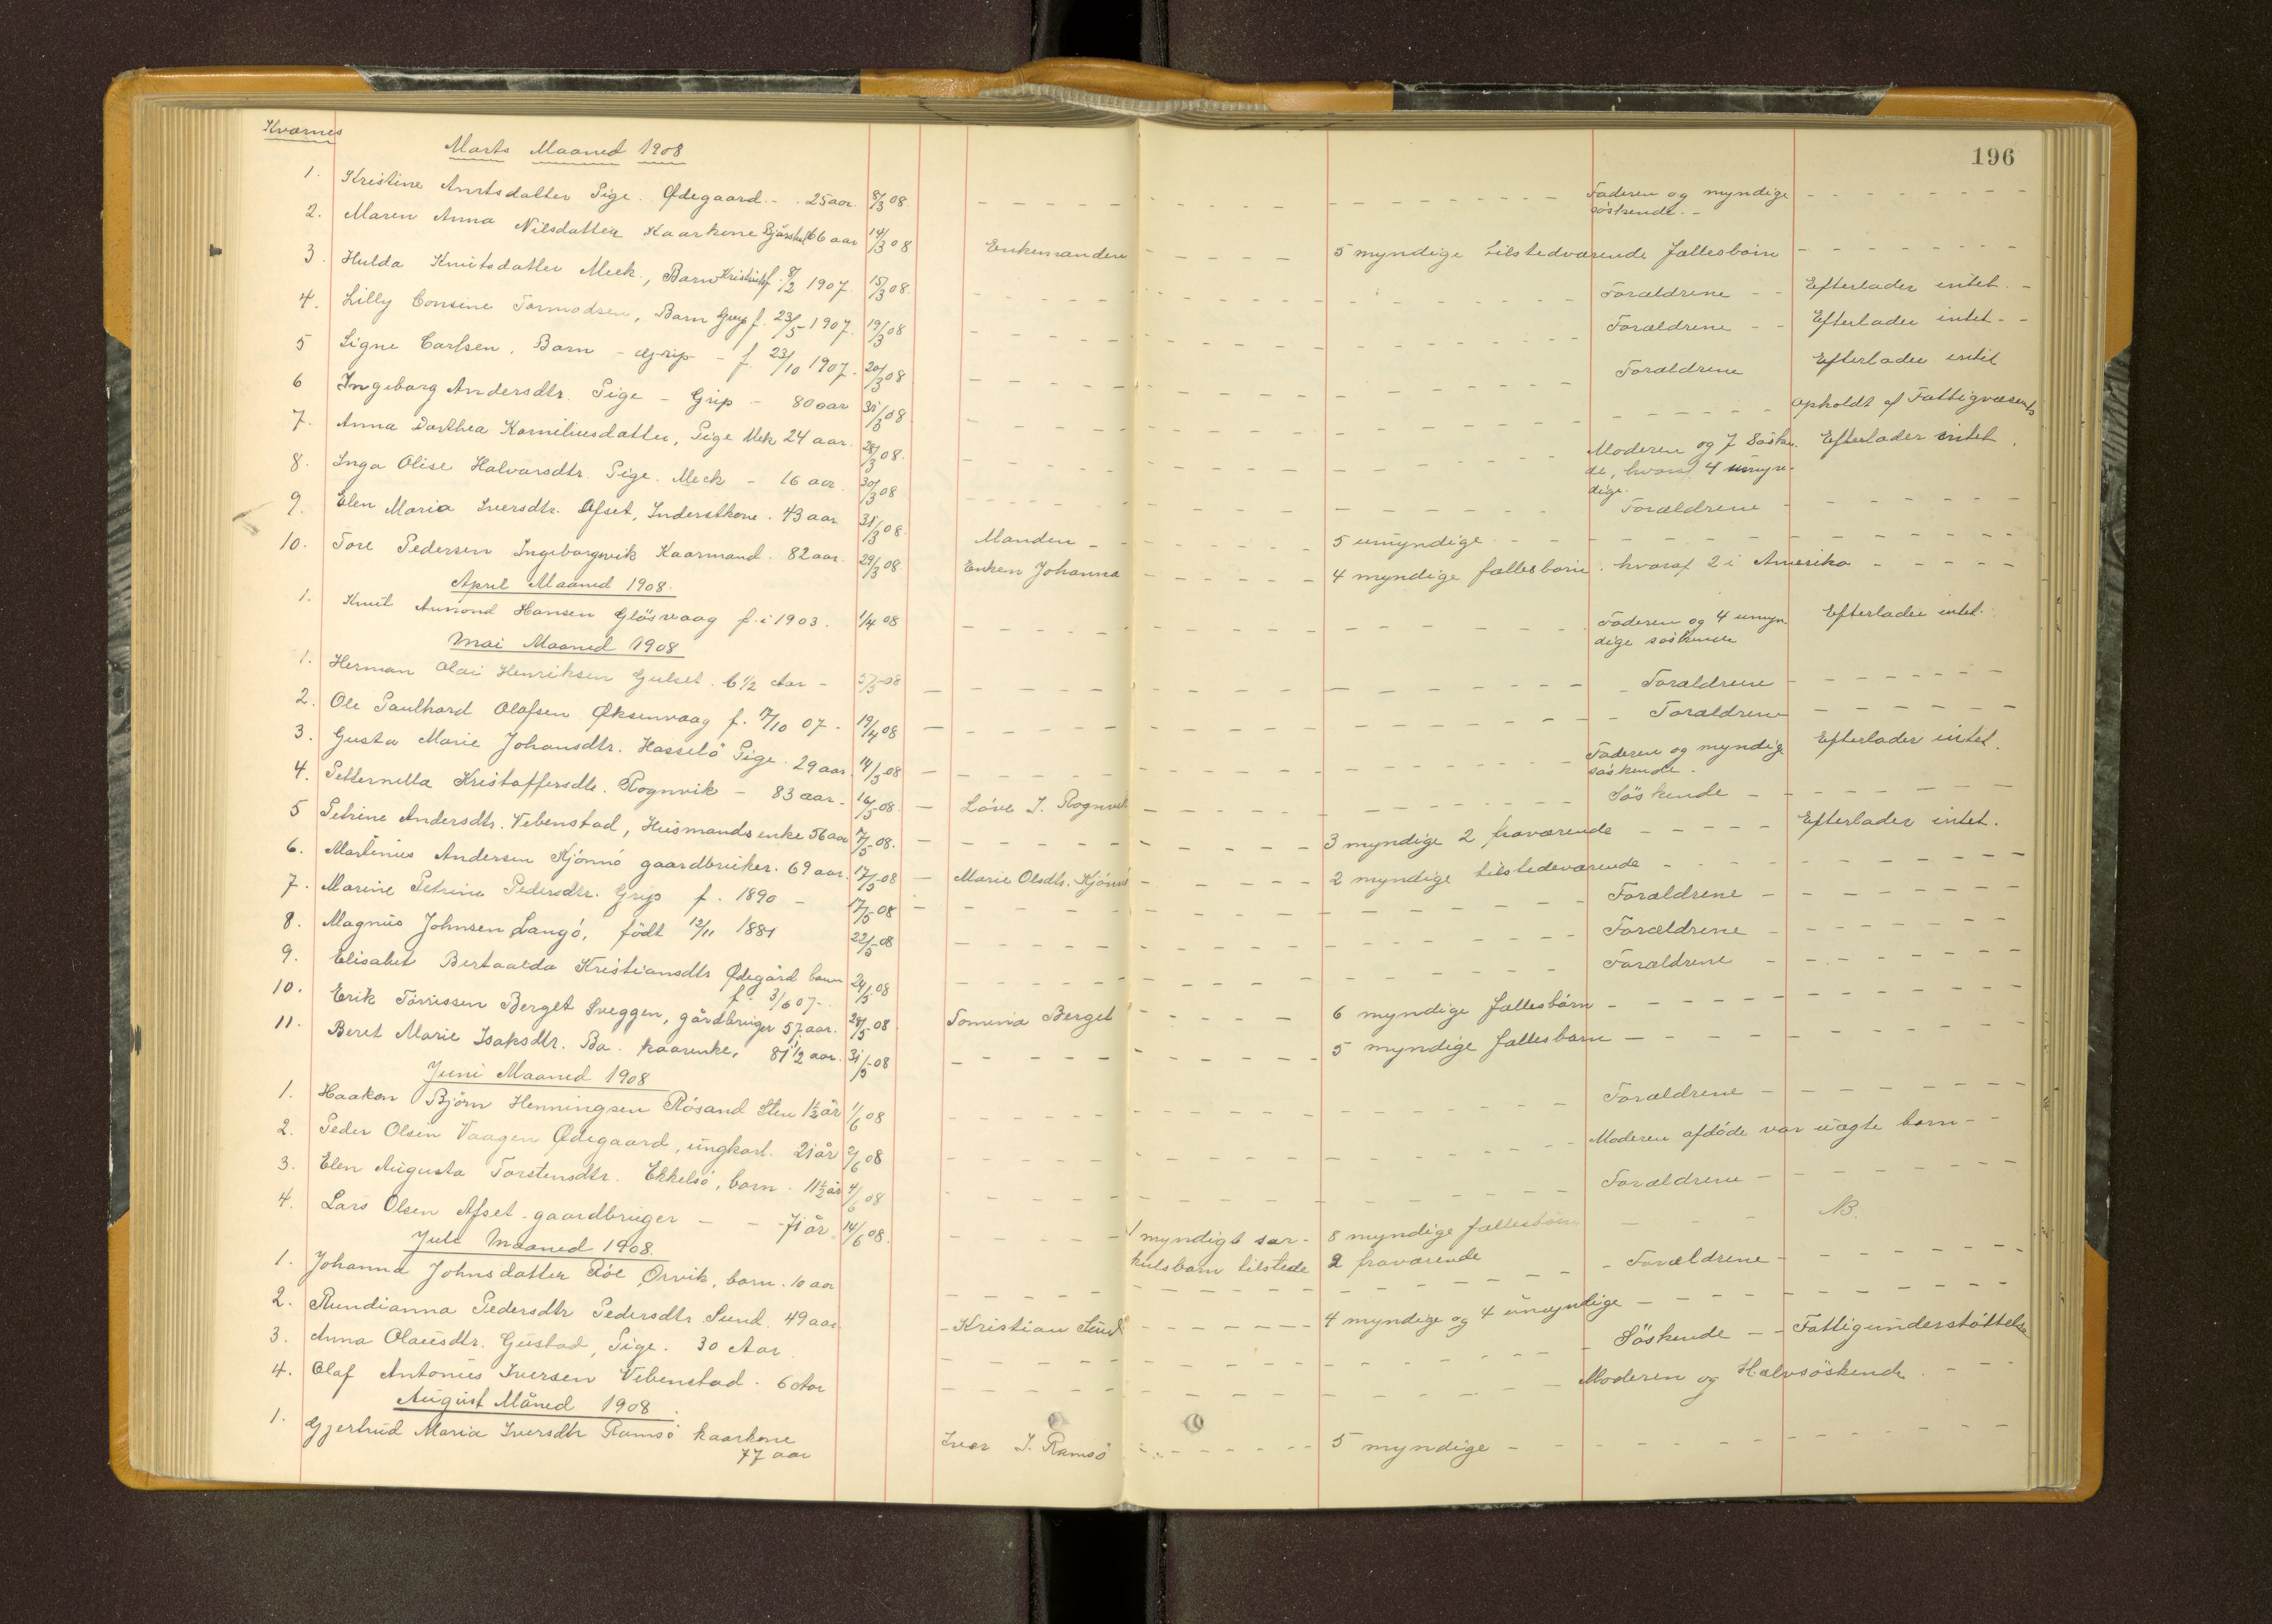 Kværnes
196
Marts Maaned 1908
1. Kristine Antsdatter Pige. Ødegaard - . 25 aar. 8/3 08. Faderen og myndige
søskende. -
2. Maren Anna Nilsdatter Kaarkone 66 aar 14/3 08 Enkemanden 5 myndige tilstedværende fællesbørn
3. Hulda Knutsdatter Meek, Barn f. 8/2 1907. 15/3 08. Forældrene - - Efterlader intet. -
4. Lilly Consine Tormodsen, Barn Grip f. 23/5 1907. 19/3 08 Forældrene - - Efterlader intet - -
5 Signe Carlsen. Barn - Grip - f. 23/10 1907. 20/3 08 Forældrene Efterlader intet
6 Ingeborg Andersdtr. Pige - Grip - 80 aar 31/3 08. Opholdt af Fattigvæsenet
7. Anna Dorthea Korneliusdatter, Pige Mek 24 aar. 28/3 08. Moderen og 7 Søsken- Efterlader intet.
de, hvoraf 4 umyn-
dige.
8. Inga Olise Halvorsdtr. Pige. Meek - 16 aar. 30/3 08 Forældrene
9. Elen Maria Iversdtr. Ofset, Inderstkone. 43 aar 31/3 08. Manden - 5 umyndige
10. Tore Pedersen Ingeborgvik Kaarmand. 82 aar. 29/3 08. Enken Johanna 4 myndige fællesbørn. hvoraf 2 i Amerika
April Maaned 1908.
1. Knut Amond Hansen Gløsvaag f. i 1903. 1/4 08 Faderen og 4 umyn Efterlader intet.
dige søskende
Mai Maaned 1908
1. Herman Olai Henriksen Gulset. 6 1/2 Aar - 5/5-08 Forældrene
2. Ole Paulhard Olafsen Øksenvaag f. 17/10 07 - 19/4 08 Forældrene
3. Gusta Marie Johansdtr. Hasselø Pige. 29 aar. 14/5-08 Faderen og myndige Efterlader intet.
søskende.
4. Petternella Kristoffersdtr. Rognvik - 83 aar - 16/5-08. Løve I. Rognvik Søskende
5 Petrine Andersdtr. Vebenstad, Husmandsenke 56 aar 7/5-08. 3 myndige 2 fraværende Efterlader intet.
6. Martinus Andersen Kjønnø gaardbruker. 69 aar. 17/5-08 Marie Olsdtr. Kjønnø 2 myndige tilstedeværende
7. Marine Petrine Pedersdtr. Grip f. 1890 - 17/5-08 Forældrene
8. Magnus Johnsen Langø, født 12/11 1881 22/5-08 Forældrene
9. Elisabet Bertaalda Kristiansdtr Ødegård barn 24/5-08 Forældrene
f. 3/6 07 -
10. Erik Tørrissen Berget Sveggen, gårdbruger 57 aar. 28/5-08 Tomina Berget 6 myndige fællesbørn
11. Beret Marie Isaksdtr. Ba. kaarenke, 81 1/2 aar. 31/5-08 5 myndige fællesbarn
Juni Maaned 1908
1. Haakon Bjørn Henningsen Røsand Sten 1 1/2 år 1/6 08 Forældrene
2. Peder Olsen Vaagen Ødegaard, ungkarl. 21 år 2/6 08 Moderen afdøde var uægte barn -
3. Elen Augusta Torstensdtr. Ekkelsø, barn. 11 1/2 år 4/6 08 Forældrene
4. Lars Olsen Afset. gaardbruger - - 71 år. 14/6 08. 1 myndigt sær- 8 myndige fællesbørn NB.
kulsbarn tilstede 2 fraværende
Juli Maaned 1908.
1. Johanna Johnsdatter Røe Ørvik, barn. 10 aar Forældrene
2. Rundianna Pedersdtr Pedersdtr Sund. 49 aar - Kristian Sund 4 myndige og 4 umyndige
3. Anna Olausdtr. Gustad, Pige. 30 Aar Søskende - - Fattigunderstøttelse
4. Olaf Antonius Iversen Vebenstad. 6 Aar Moderen og Halvsøskende.
August Måned 1908.
1. Gjertrud Maria Iversdtr Ramsø kaarkone Iver I. Ramsø 5 myndige
77 aar